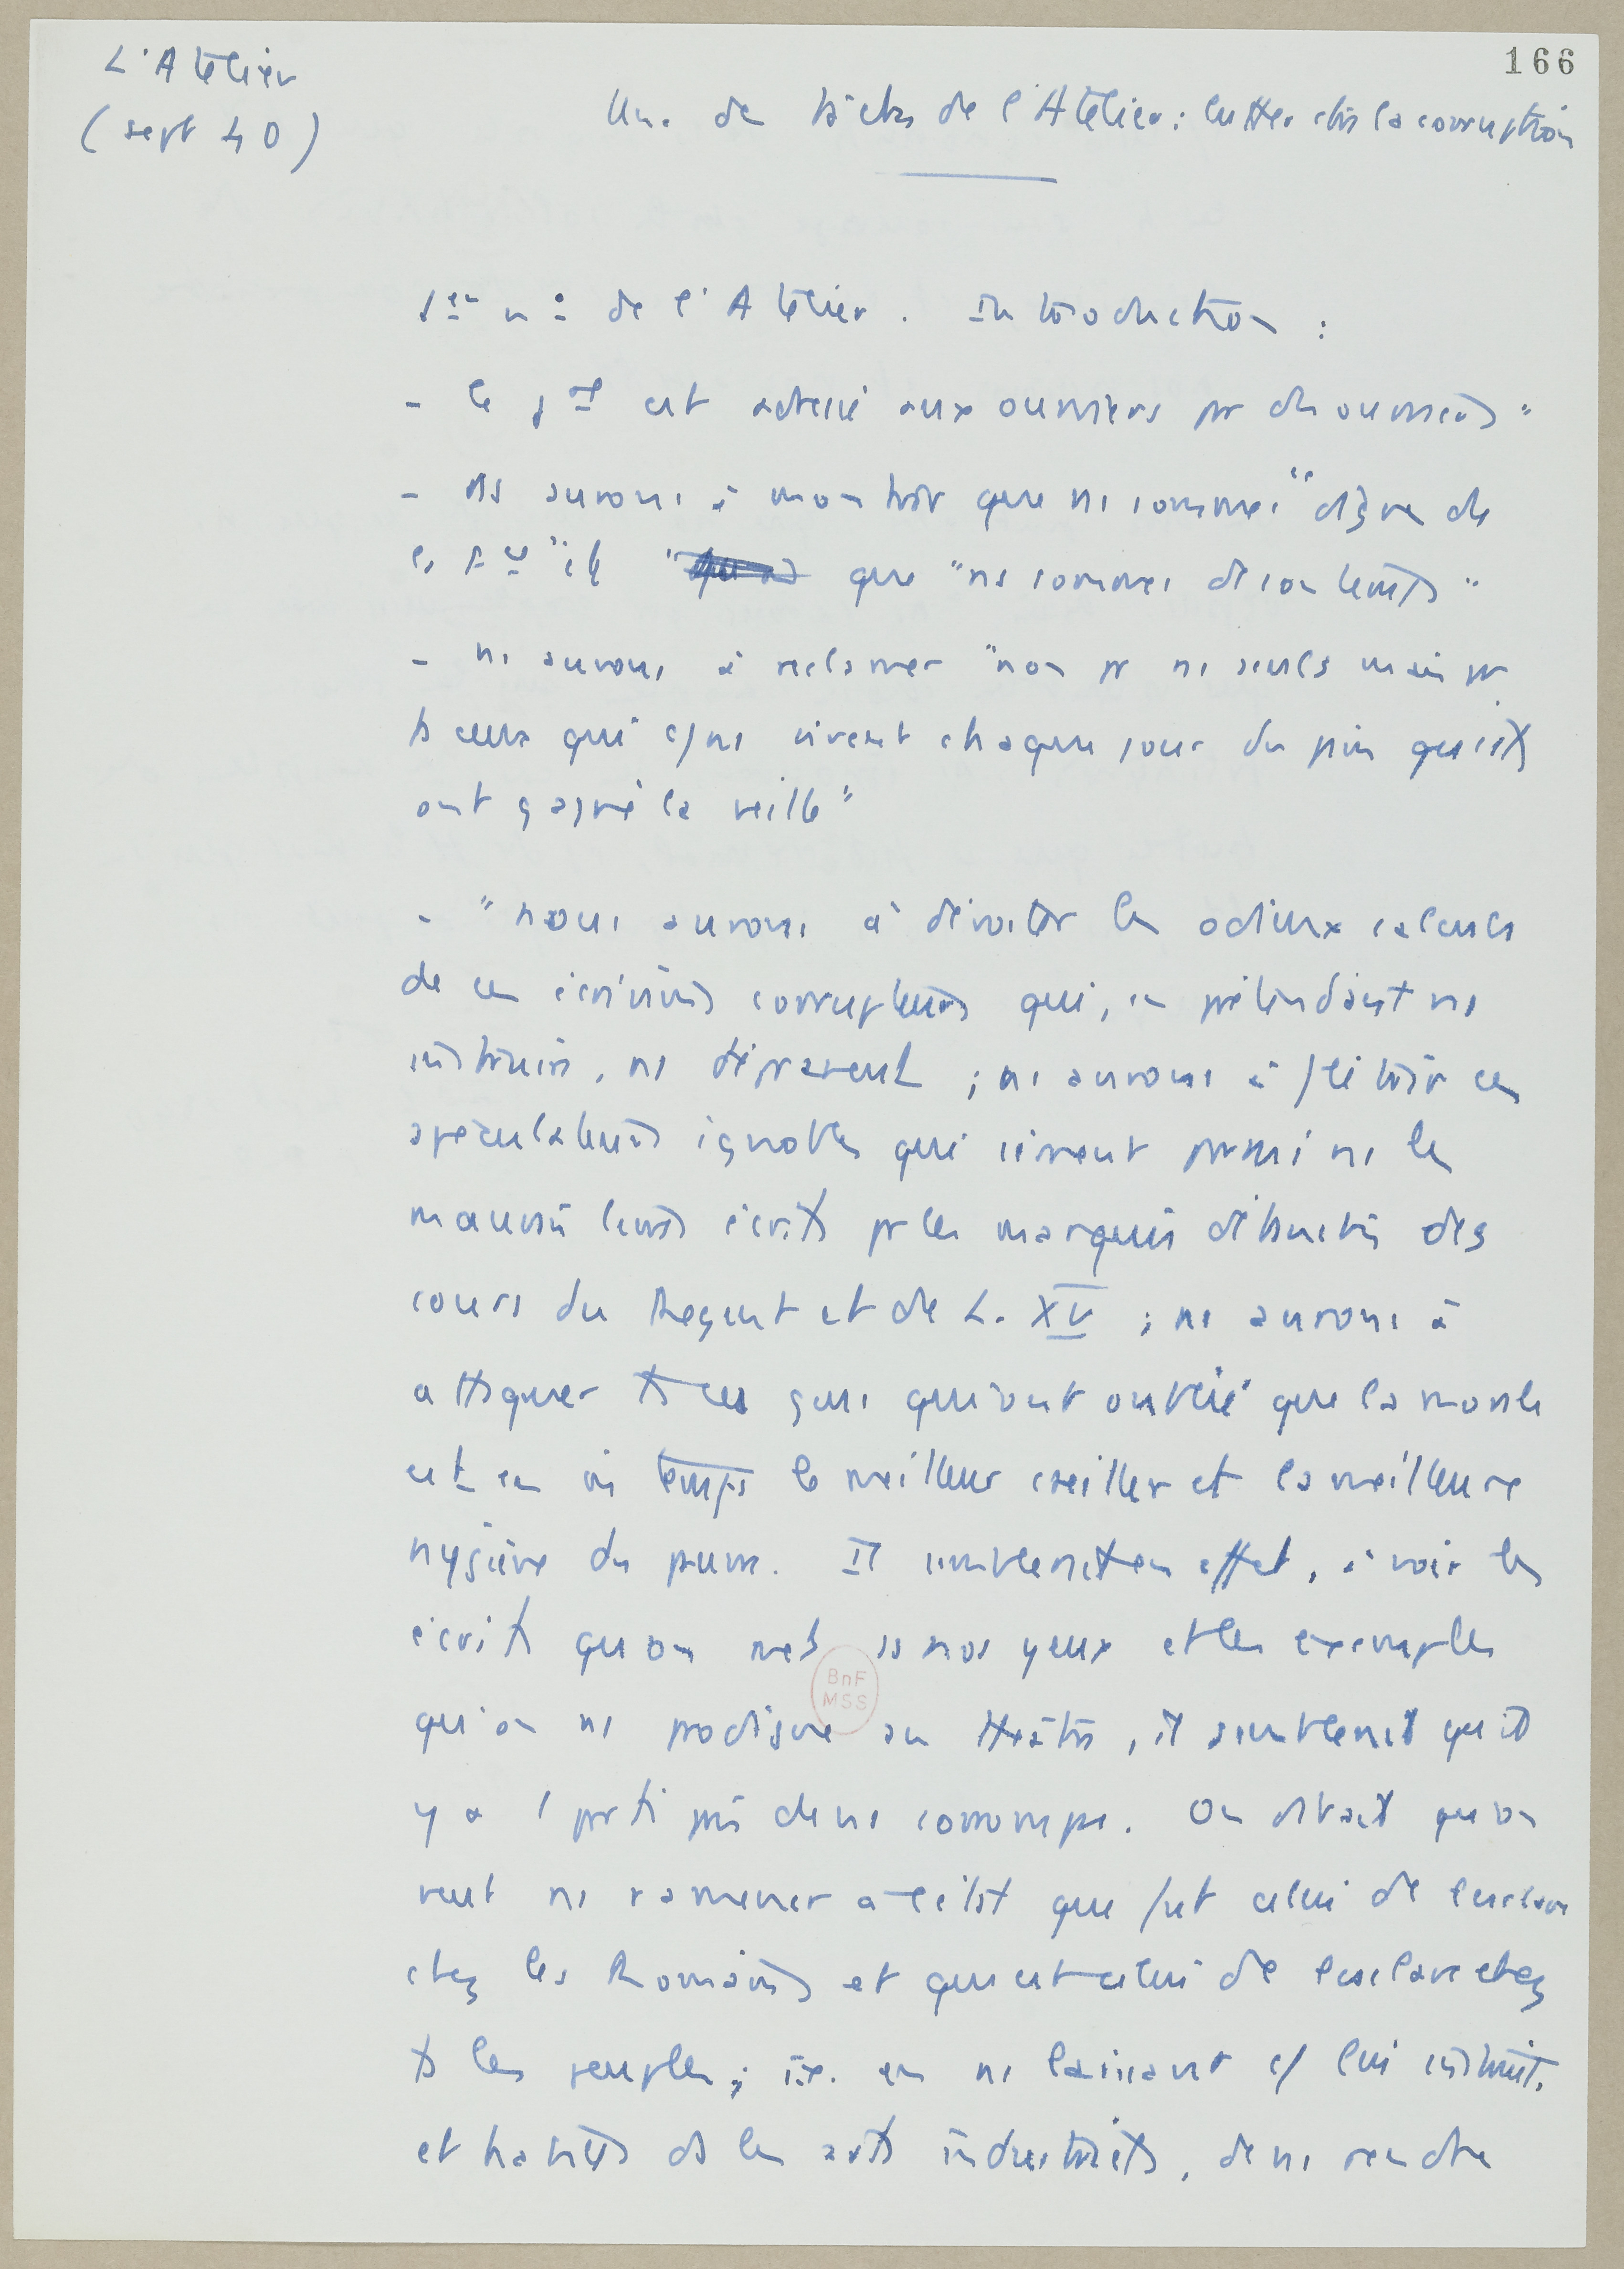 166
L'Atelier
(sept 40)
Une des tâches de l'Atelier : lutter ctre la corruption
1er n° de l'Atelier. Introduction :
- le jal est adressé aux ouvriers par des ouvriers"
- ns aurons à montrer que ns sommes "digne de
la que "ns sommes
- ns aurons à réclamer "non pr ns seuls mais pr
ts ceux qui c/ns vivent chaque jour du pain qu'ils
ont gagné la veille"
- "nous aurons à dévoiler les odieux calculs
de ces écrivains corrupteurs qui, en prétendant ns
instruire, ns dépravent ; ns aurons à flétrir ces
spéculateurs ignobles qui sèment parmi ns les
mauvais livres écrits pr les marquis des
cours du Régent et de L. XV ; ns aurons à
attaquer ts ces gens qui ont oublié que la morale
est en m temps le meilleur cseiller et la meilleure
hygiène du pauvre. Il semblerait en effet, à voir les
écrits qu'on met ss nos yeux et les exemples
qu'on ns prodigue au théâtre, il semblerait qu'il
y a 1 parti pris de ns corrompre. On dirait qu'on
veut ns ramener à l'état que fut celui de l'esclave
chez les Romains et qui est celui de l'esclave chez
ts les peuples ; i.e. en ns laissant c/ lui instruits
et habiles ds les arts industriels, de ns rendre
BnF
MSS